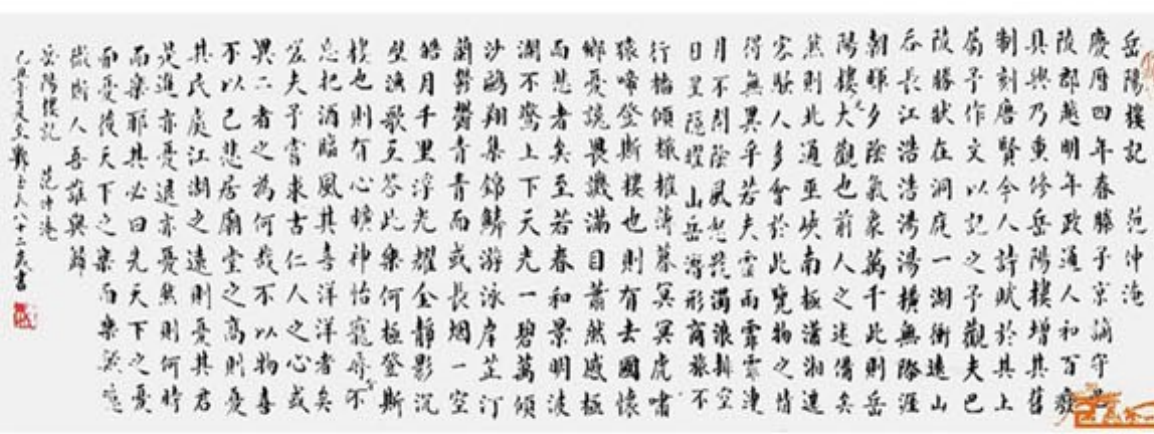 岳陽樓記 范仲淹
慶曆四年春滕子京謫守
陵郡越明年政通人和百廢
具興乃重修岳陽樓增其舊
制刻唐賢今人詩賦於其上
屬予作文以記之予觀夫巴
陵勝狀在洞庭一湖銜遠山
吞長江浩浩湯湯橫無際涯
朝暉夕陰氣象萬千此則岳
陽樓之大觀也前人之述備矣
然則北通巫峽南極瀟湘遷
客騷人多會於此覽物之情
得無異乎若夫霪雨霏霏連
月不開陰風怒號濁浪排空
日星隱耀山岳潛形商旅不
行檣傾楫摧薄暮冥冥虎嘯
猿啼登斯樓也則有去國懷
鄉憂讒畏譏滿目蕭然感極
而悲者矣至若春和景明波
瀾不驚上下天光一碧萬頃
沙鷗翔集錦鱗游泳岸芷汀
蘭鬱鬱青青而或長烟一空
皓月千里浮光耀金靜影沉
璧漁歌互答此樂何極登斯
樓也則有心曠神怡寵辱不
忘把酒臨風其喜洋洋者矣
嗟夫予嘗求古仁人之心或
異二者之為何哉不以物喜
不以己悲居廟堂之高則憂
其民處江湖之遠則憂其君
是進亦憂退亦憂然則何時
而樂耶其必曰先天下之憂
而憂後天下之樂而樂歟噫
微斯人吾誰與歸
岳陽樓記 范仲淹
己丑年夏 鄭玉人八十二歲書